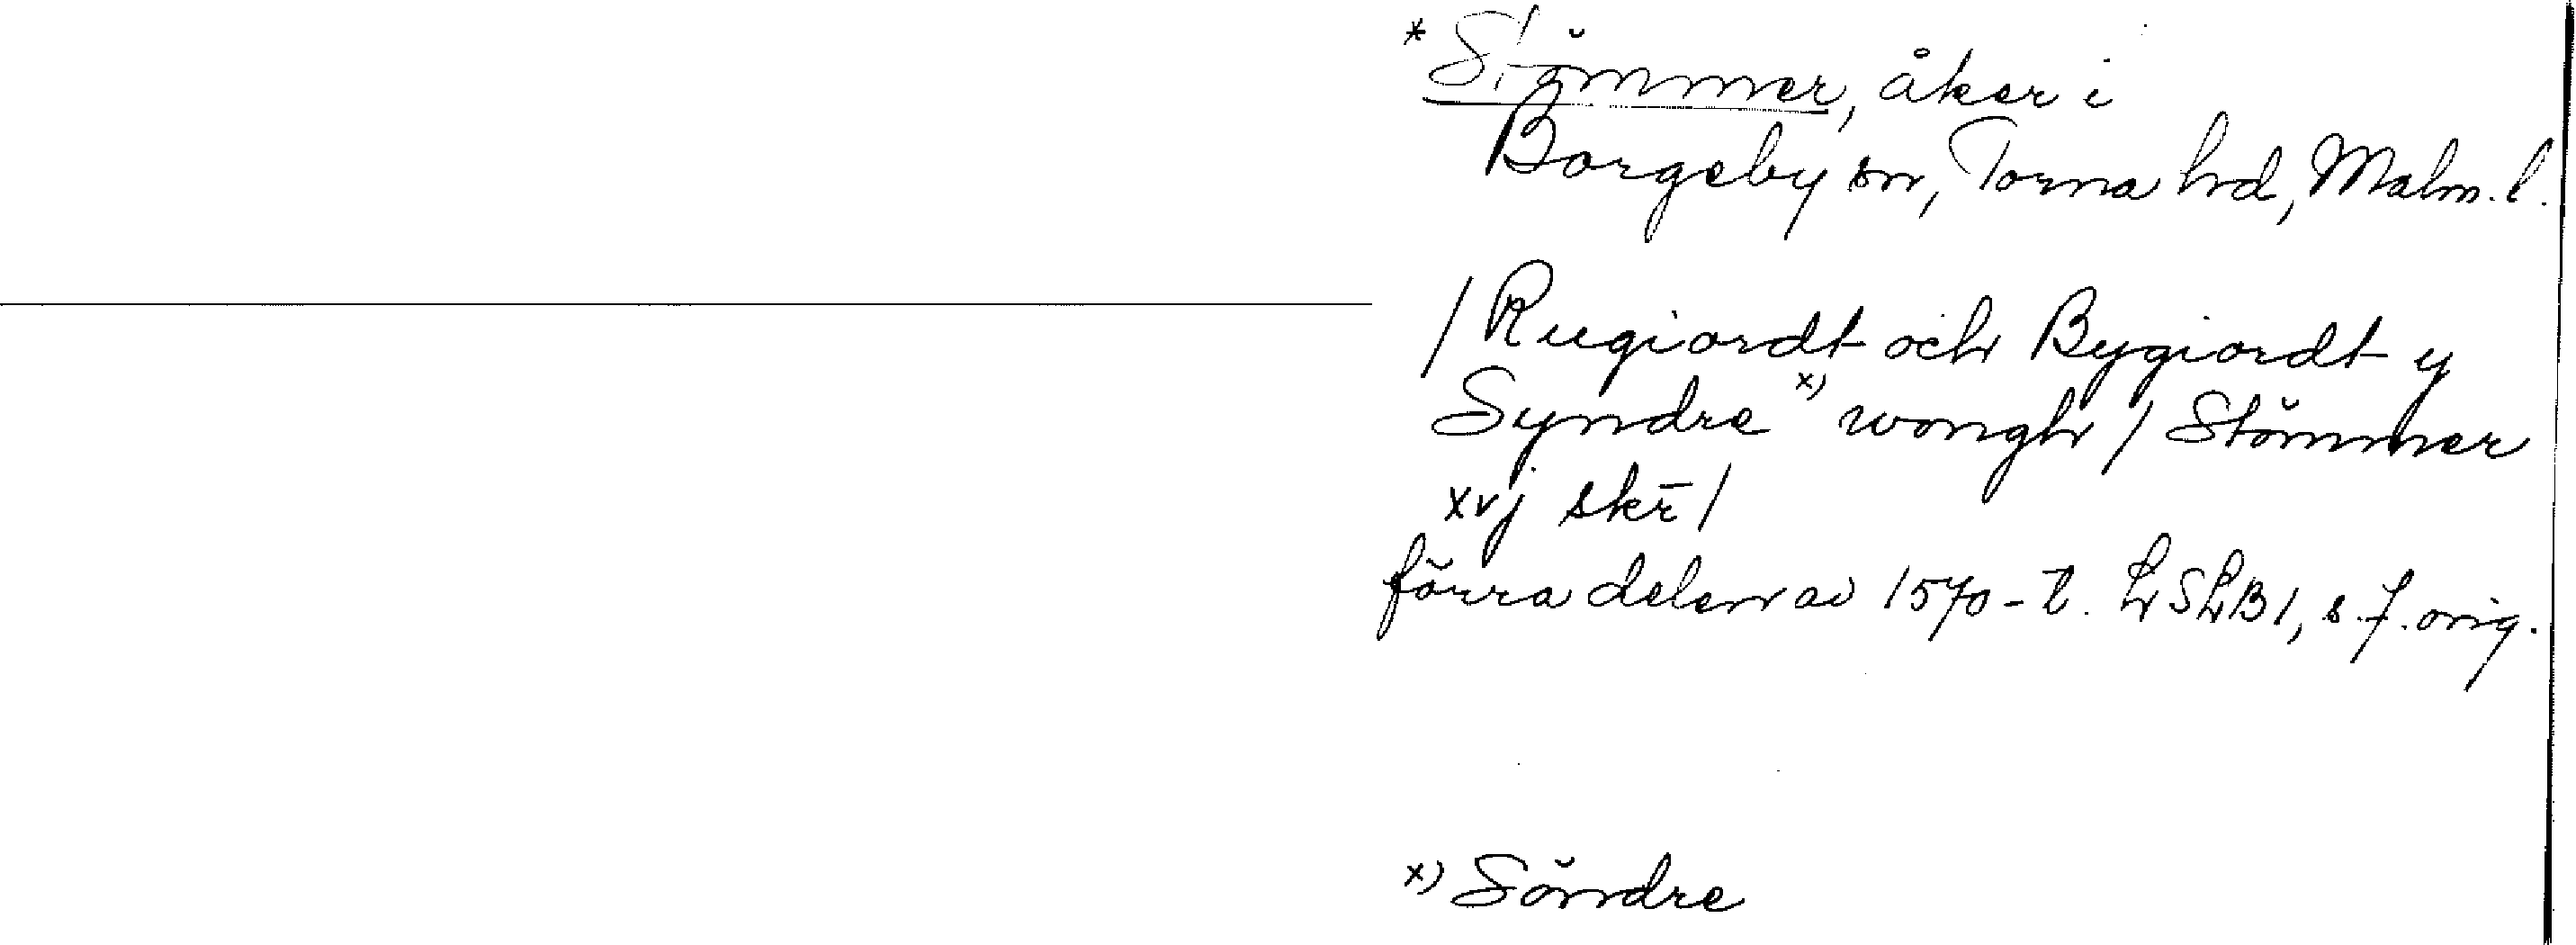 * Stömmer, åker i
Borgeby sn, Torna hd, Malm. l.
/ Rugiordt och Bygiordt y
Syndre x) wongh / Stömmer
xvj skr̄ /
förra delen av 1570-t. LSLB1, s. 7. orig.
x) Söndre